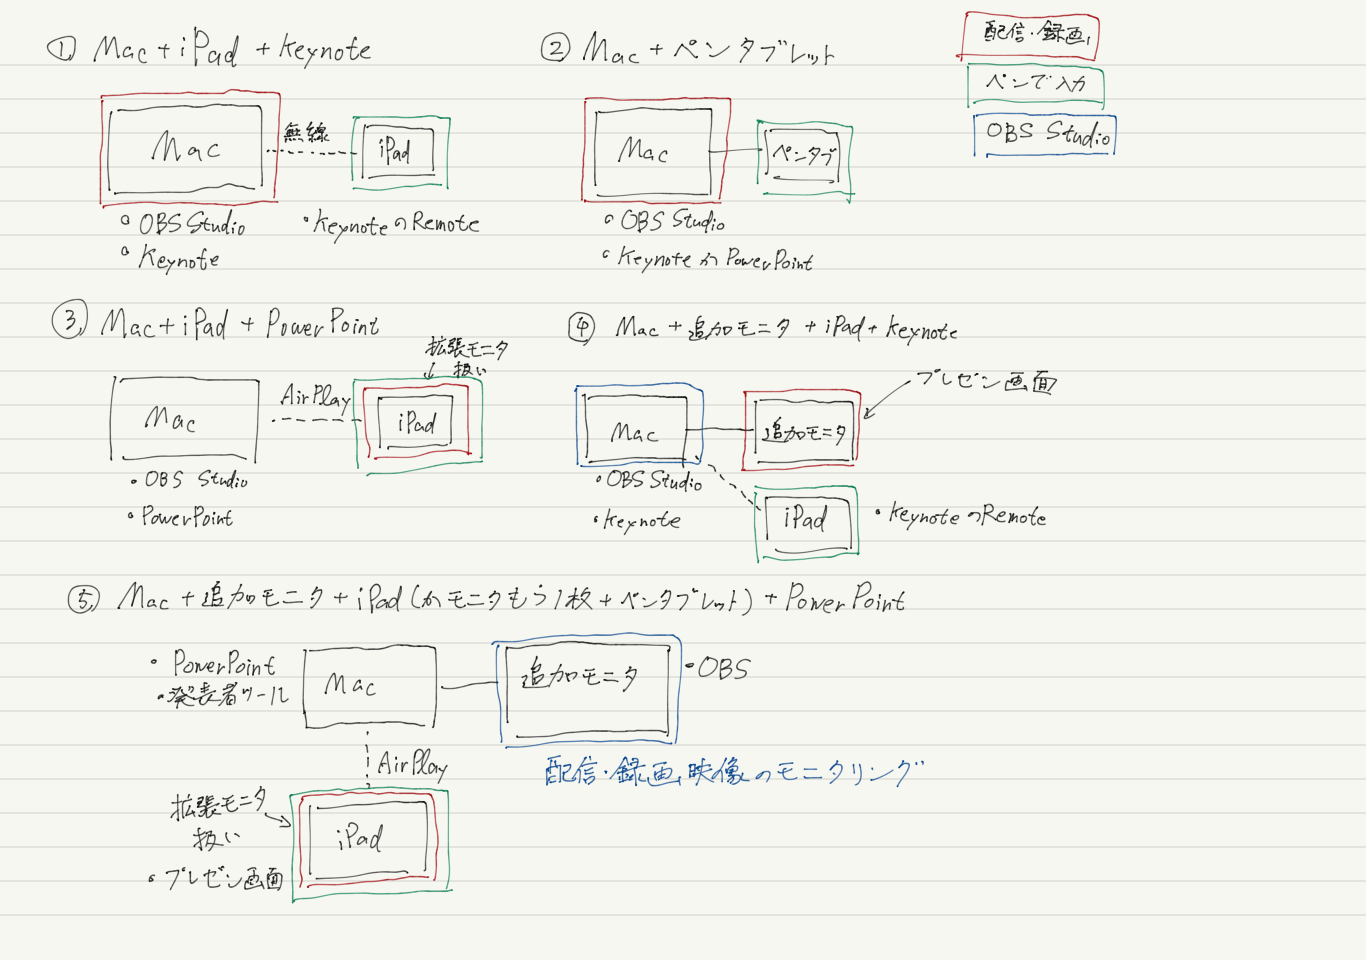 ① Mac+iPad+Keynote
Mac
無線
iPad
• OBS Studio
• Keynote
• KeynoteのRemote
② Mac+ペンタブレット
Mac
ペンタブ
• OBS Studio
• KeynoteかPowerPoint
配信・録画
ペンで入力
OBS Studio
③ Mac+iPad+PowerPoint
拡張モニタ
扱い
Mac
AirPlay
iPad
• OBS Studio
• PowerPoint
④ Mac+追加モニタ+iPad+Keynote
プレゼン画面
Mac
追加モニタ
• OBS Studio
• Keynote
iPad
• KeynoteのRemote
⑤ Mac+追加モニタ+iPad(かモニタもう1枚+ペンタブレット)+PowerPoint
• PowerPoint
• 発表者ツール
Mac
追加モニタ
• OBS
配信・録画映像のモニタリング
AirPlay
拡張モニタ
扱い
iPad
• プレゼン画面